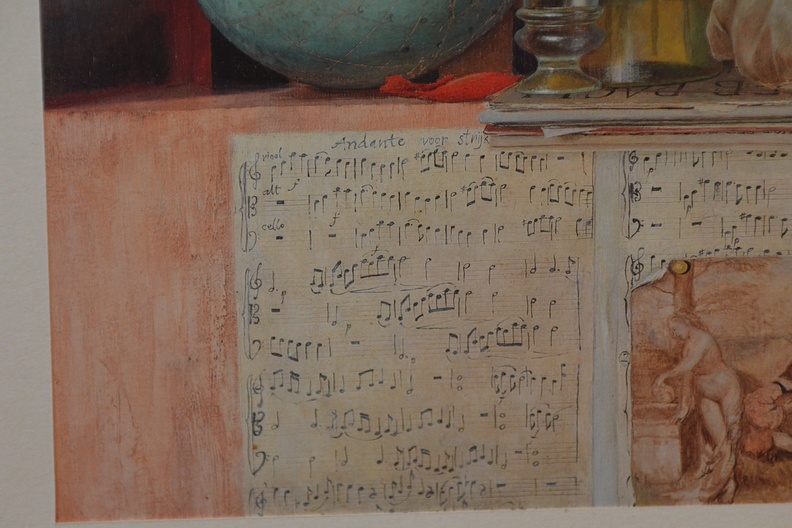 Andante voor strijk
viool
alt
cello